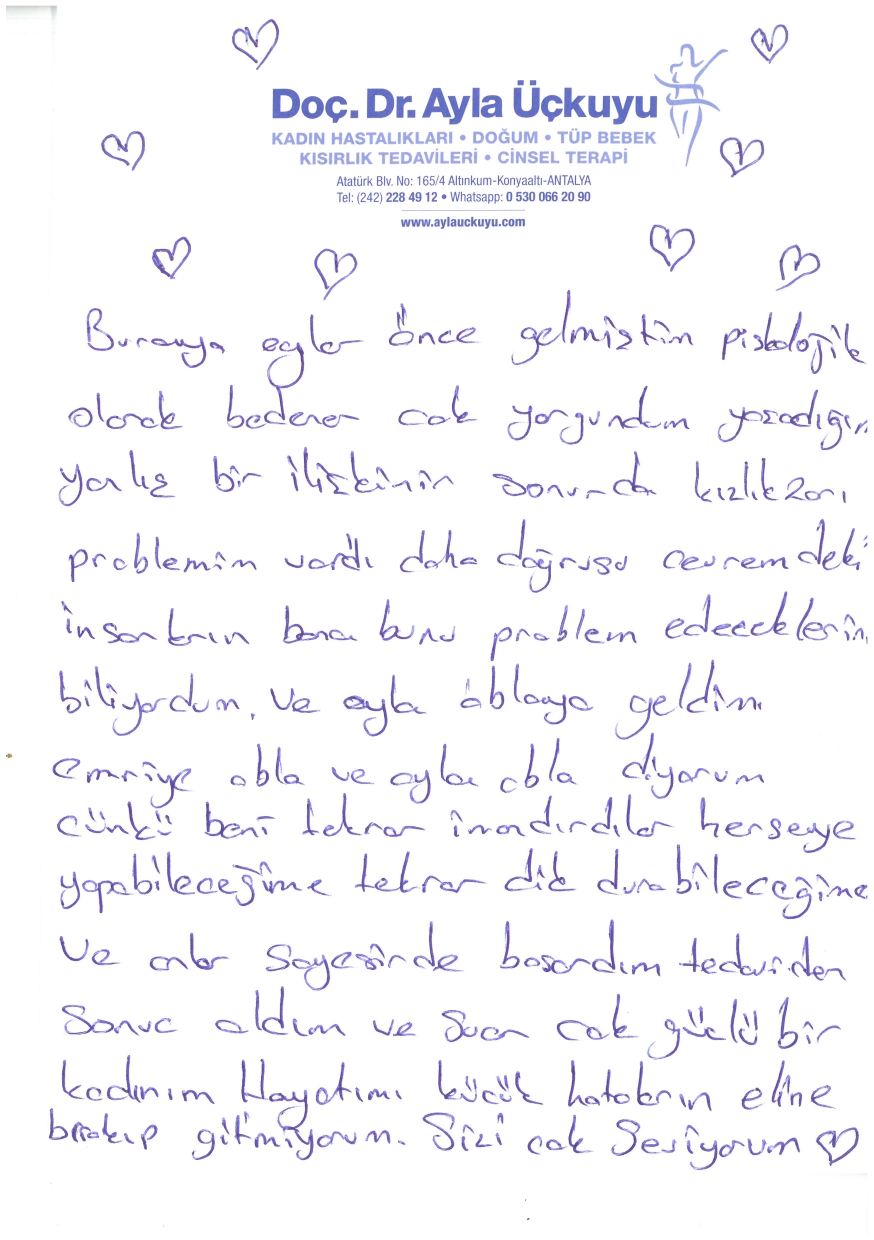 Doç. Dr. Ayla Üçkuyu
KADIN HASTALIKLARI • DOĞUM • TÜP BEBEK
KISIRLIK TEDAVİLERİ • CİNSEL TERAPİ
Atatürk Blv. No: 165/4 Altınkum-Konyaaltı-ANTALYA
Tel: (242) 228 49 12 • Whatsapp: 0 530 066 20 90
www.aylauckuyu.com
Buraya aylar önce gelmiştim piskolojik
olarak bedenen cok yorgundum yasadığım
yanlış bir ilişkinin sonunda kızlık zarı
problemim vardı daha doğrusu cevremdeki
insanların bana bunu problem edeceklerini
biliyordum, ve ayla ablaya geldim.
emriye abla ve ayla abla diyorum
cünkü beni tekrar inandırdılar herseye
yapabileceğime tekrar dik durabileceğime
ve onlar sayesinde basardım tedaviden
Sonuc aldım ve Suan cok güclü bir
kadınım Hayatımı kücük hataların eline
bırakıp gitmiyorum. Sizi cok Seviyorum